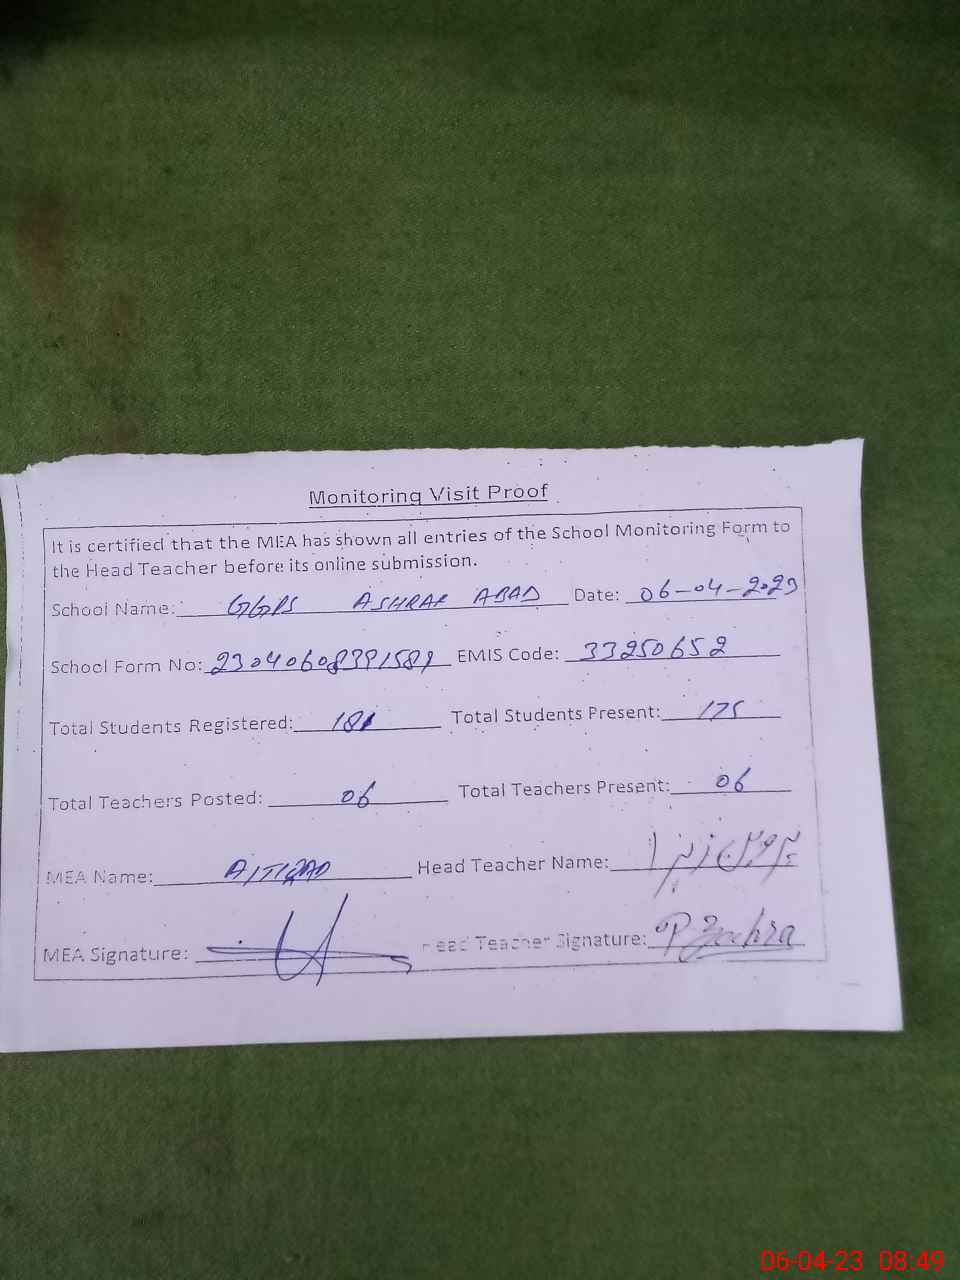 Monitoring Visit Proof
It is certified that the MEA has shown all entries of the School Monitoring Form to
the Head Teacher before its online submission.
School Name: GGPS ASHRAF ABAD Date: 06-04-2023
School Form No: 23040608391589 EMIS Code: 33250652
Total Students Registered: 181 Total Students Present: 175
Total Teachers Posted: 06 Total Teachers Present: 06
MEA Name: Head Teacher Name: پروین زہرا
MEA Signature: Head Teacher Signature: P Zachra
06-04-23 08:49